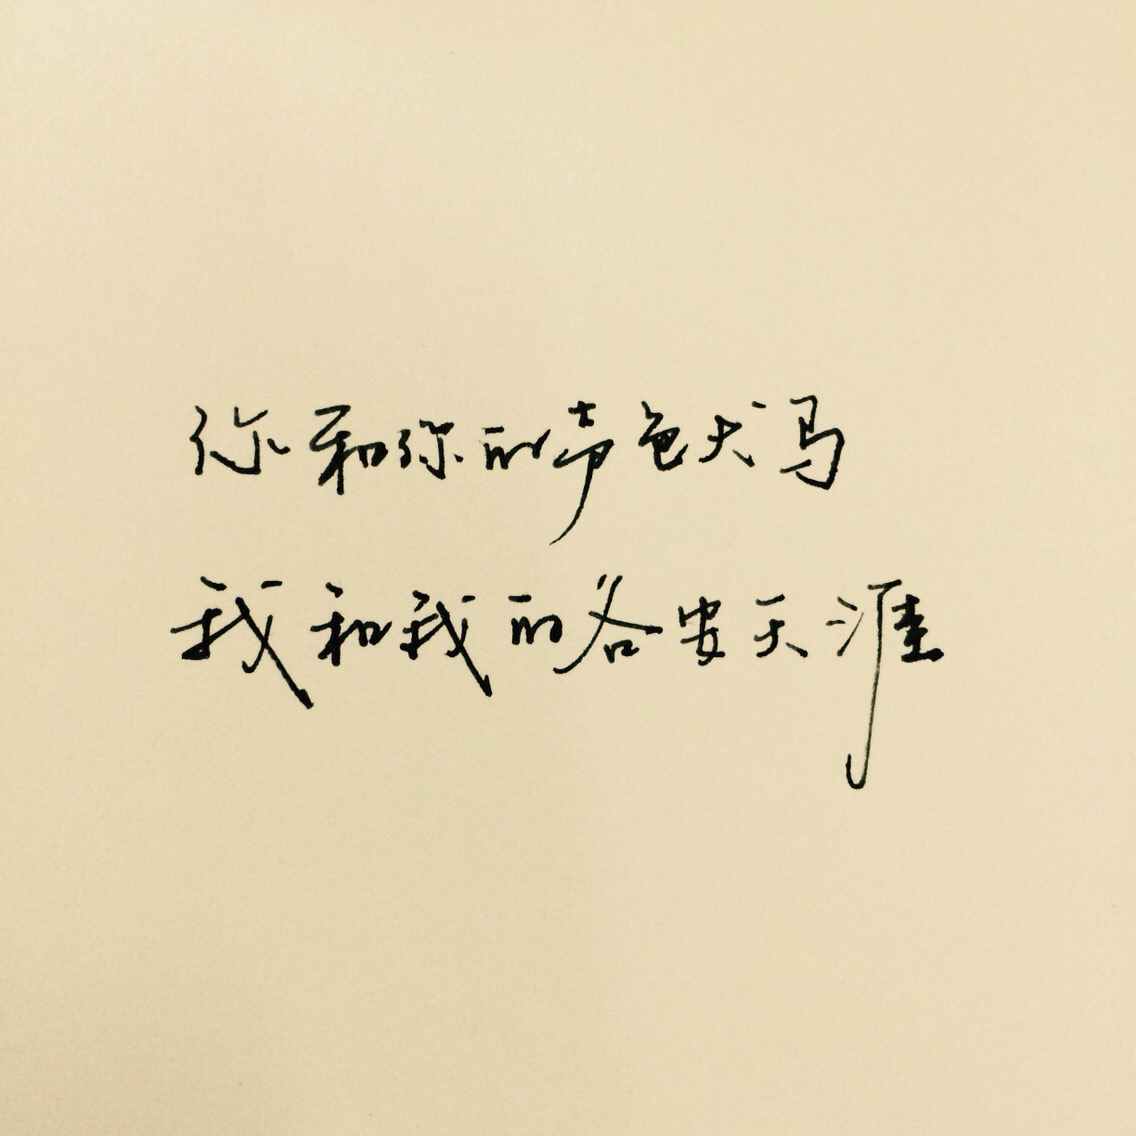 你和你的声色犬马
我和我的各安天涯